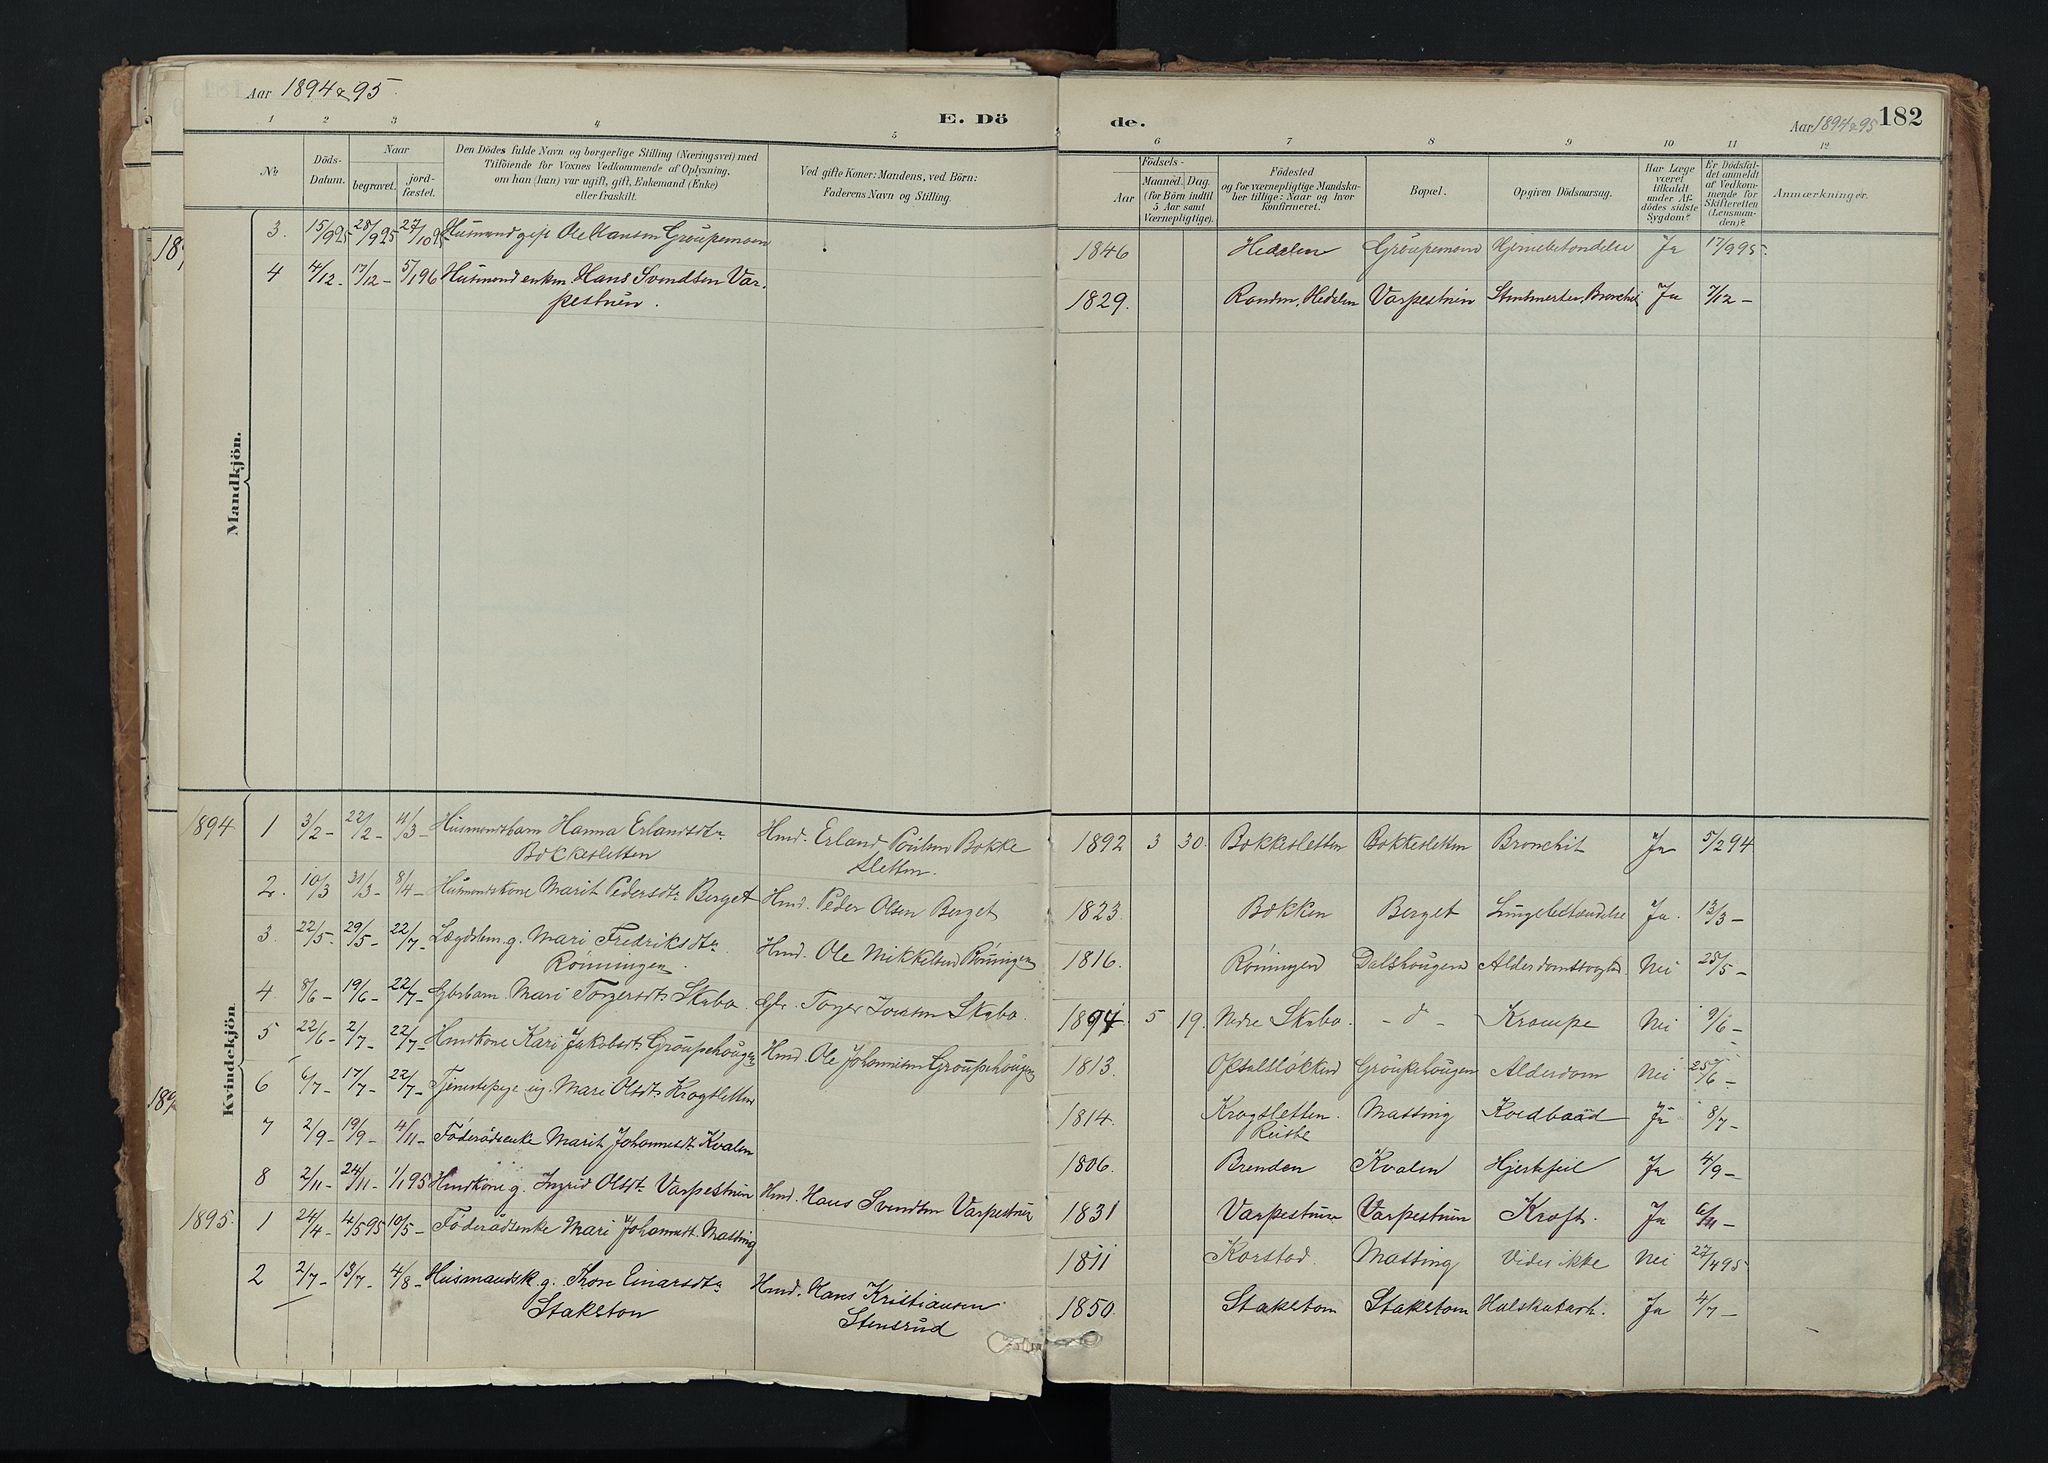 Aar 1894 & 95.
E. Dö
de.
Aar 1894 & 95
182
1 2 3 4 5
6 7 8 9 10 11 12
No
Döds-Datum.
Naar
begravet.
jord-fæstet.
Den Dödes fulde Navn og borgerlige Stilling (Næringsvei) med
Tilföiende for Voxnes Vedkommende af Oplysning,
om han (hun) var ugift, gift, Enkemand (Enke)
eller fraskilt.
Ved gifte Koner: Mandens, ved Börn:
Faderens Navn og Stilling.
Födsels-
Aar
Maaned. Dag.
(for Börn indtil
5 Aar samt
Værnepligtige).
Födested
og for værnepligtige Mandska-
ber tillige: Naar og hvor
konfirmeret.
Bopæl.
Opgiven Dödsaarsag.
Har Læge
været
tilkaldt
under Af-
dödes sidste
Sygdom?
Er Dödsfal-
det anmeldt
af Vedkom-
mende for
Skifteretten
(Lensman-
den)?
Anmærkninger.
Mandkjön.
3. 15/9 95 28/9 95 27/10 95 Husmand gift Ole Hansen Groupemoen 1846 Hedalen Groupemoen Hjernebetændelse Ja 17/9 95.
4 4/12 - 17/12 - 5/1 96 Husmand enkm. Hans Svendsen Var-
pestuen. 1829. Hedalen Varpestuen Bronchit Ja 7/12 -
Kvindekjön
1894 1 3/2 - 22/2 - 11/3 - Husmandsbarn Hanna Erlandsdtr Hmd. Erland Poulsen Bokke 1892 3 30. Bokkesletten Bokkesletten Bronchit Ja 5/2 94
Bokkesletten sletten.
2. 10/3 31/3 - 8/4 - Husmandskone Marit Pedersdtr Berget Hmd. Peder Olsen Berget 1823. Bokken Berget Lungebetændelse Ja. 13/3 -
3. 22/5 - 29/5 - 22/7 - Lægdslem g. Mari Fredriksdtr Hmd. Ole Mikkelsen Rönningen 1816. Rönningen Dalshougen Nei 25/5 -
Rönningen.
4 8/6 - 19/6 - 22/7 - Gbrbarn. Mari Torgersdtr Skabo. Gbr. Torger Skabo. 1894. 5 19. Nedre Skabo. - d - Krampe Nei 9/6 -
5 22/6 - 2/7 - 22/7 - Hmdkone Kari Jakobsdtr Groupehougen Hmd. Ole Johannesen Groupehougen 1813. Groupehougen Alderdom Nei 25/6 -
6 6/7 - 17/7 - 22/7 - Tjenestepige ug. Mari Olsdtr Krogsletten 1814. Krogsletten. Matting Ja 8/7 -
Ruste
7 2/9 - 19/9 - 4/11 - Föderådsenke Marit Johannesdtr Kvalen 1806. Brenden Kvalen Hjertefeil Ja 4/9 -
8 2/11 - 24/11 - 1/1 95 Hmdkone g. Ingrid Olsdtr Varpestuen Hmd. Hans Svendsen Varpestuen 1831 Varpestuen Varpestuen Kræft. Ja 6/11 -
1895. 1 24/4 - 4/5 95 10/5 - Föderådsenke Mari Johannesdt. Matting 1811 Korstad. Matting Vides ikke Nei 27/4 95
2 2/7 - 13/7 - 4/8 - Husmandsk. g. Thore Einarsdtr Hmd. Hans Kristiansen 1850. Stakston Stakston Halskatarh. Ja 4/7 -
Stakston Stensrud